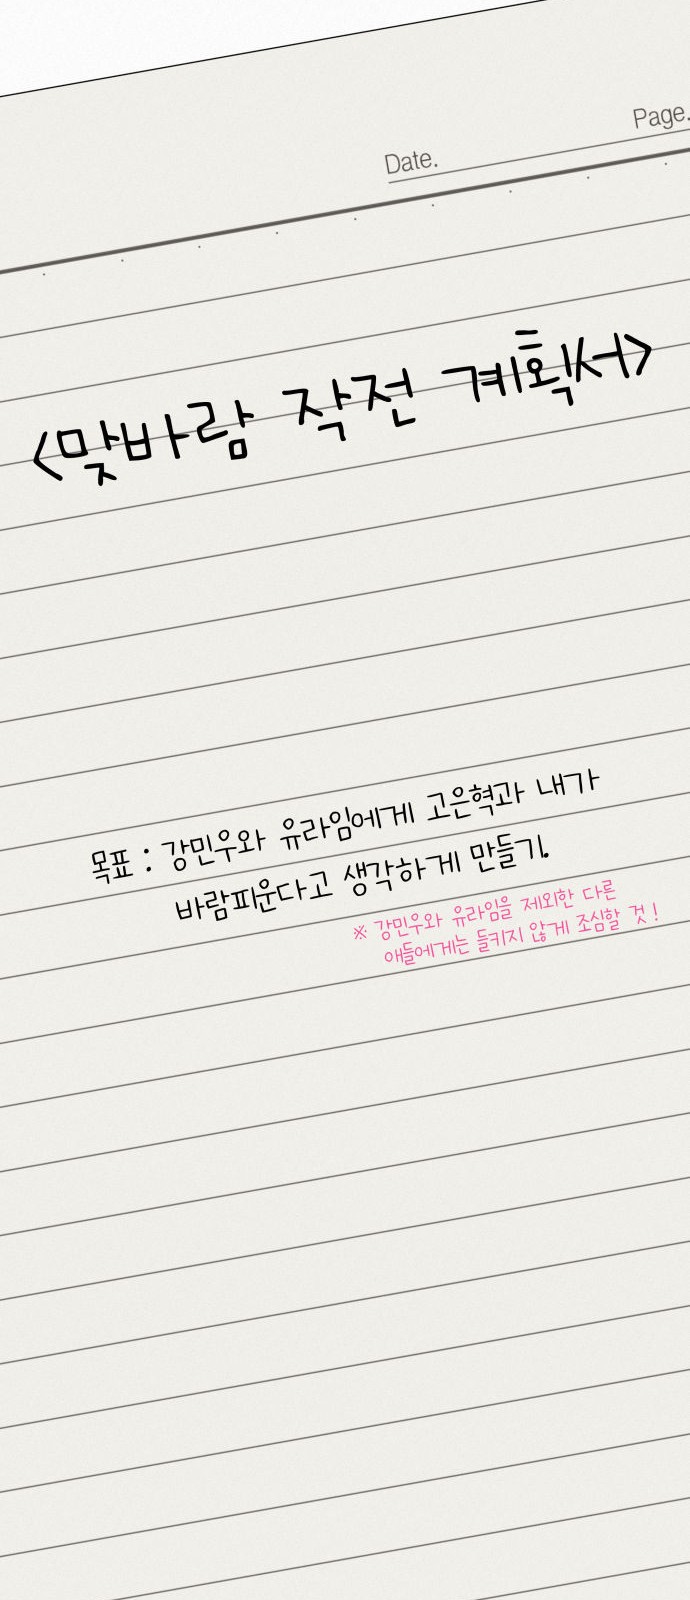 Date.
Page.
<맞바람 작전 계획서>
목표 : 강민우와 유라임에게 고은혁과 내가
바람피운다고 생각하게 만들기.
※ 강민우와 유라임을 제외한 다른
애들에게는 들키지 않게 조심할 것!